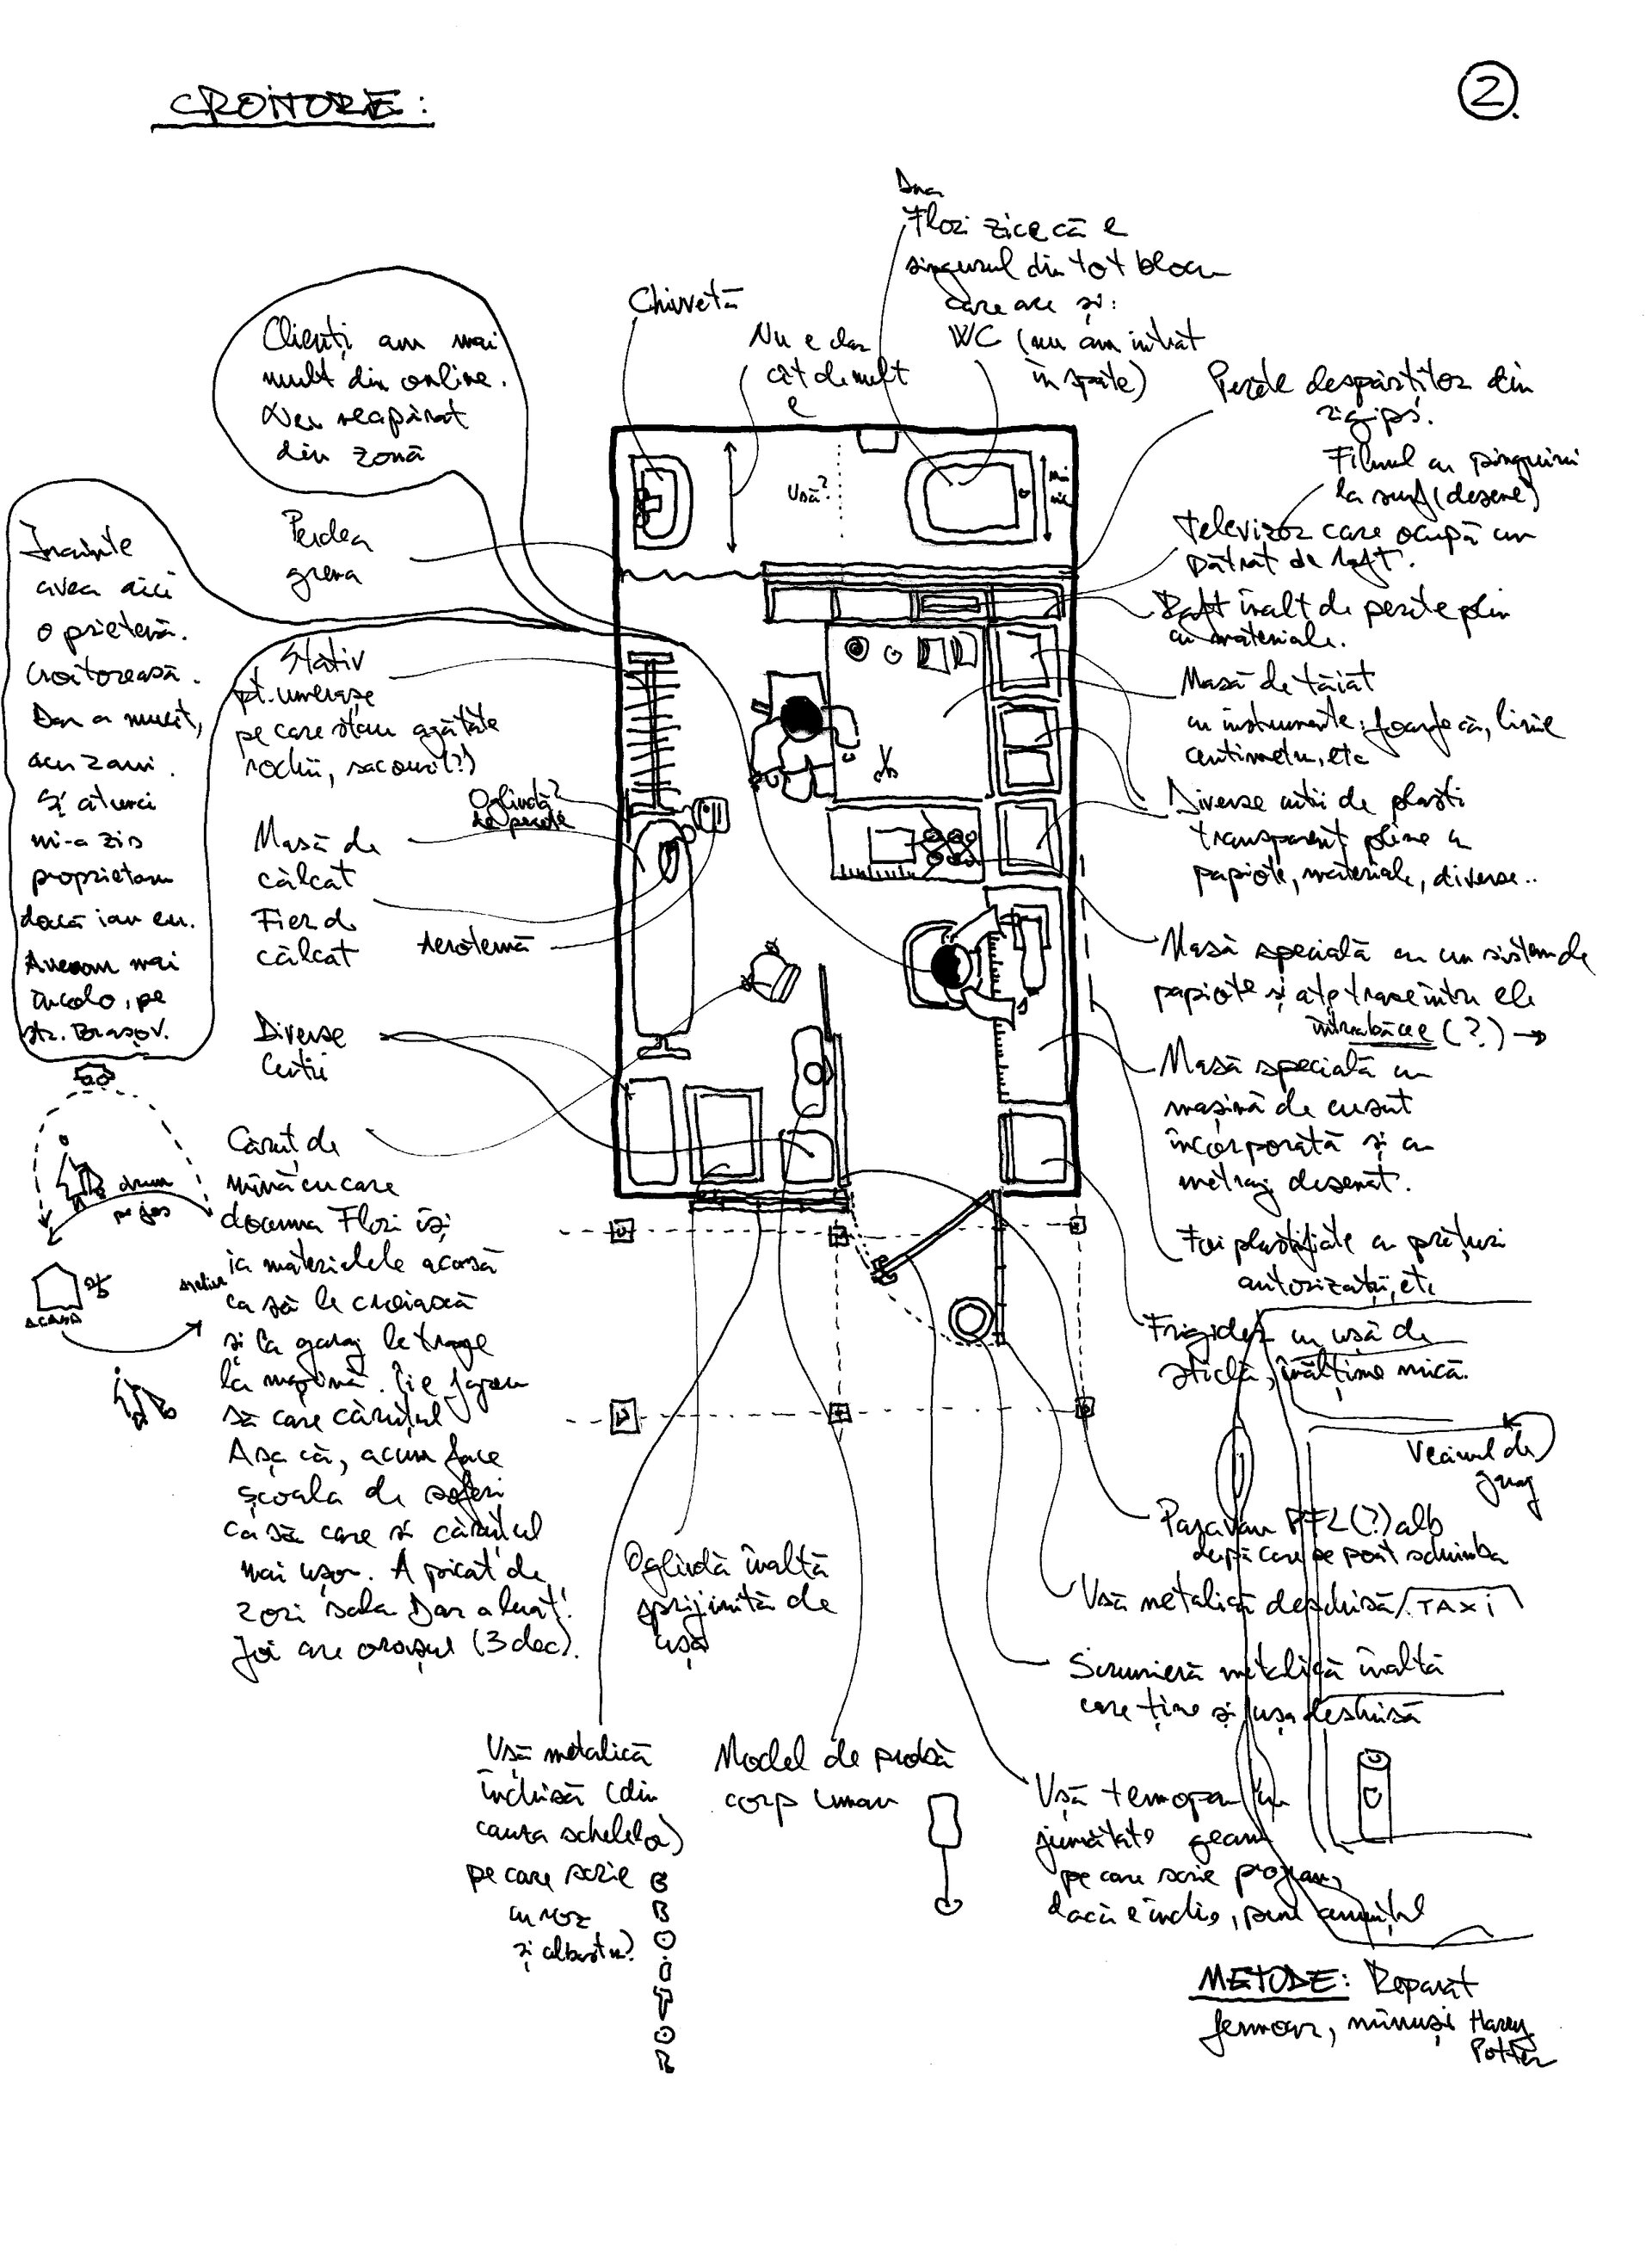 CROITORE:
2.
Dna
Flori zice că e
singurul din tot blocu
care are și:
WC (nu am intrat
în spate)
Chiuvetă
Nu e clar
cât de mult
e
Ușă?
Clienți am mai
mult din online.
reapărat
din zonă
Perdea
grena
Înainte
avea aici
o prietenă.
Croitoreasă.
Dar a murit,
acu 2 ani.
Și atunci
mi-a zis
proprietara
dacă iau eu.
Aveam mai
încolo, pe
str. Brașov.
Stativ
pt. umerașe
pe care stau agățate
rochii, sacouri(?)
Oglindă?
de perete
Masă de
călcat
Fier de
călcat
Aerotermă
Diverse
Cutii
drum
pe jos
ACASĂ
atelier
Căruț de
mînă cu care
doamna Flori își
ia materialele acasă
ca să le croiască
și la garaj le trage
la mașină. Îi e
să care căruțul
Așa că, acum face
școala de șoferi
ca să care și căruțul
mai ușor. A picat de
2 ori sala Dar a luat!
Joi are orașul (3 dec).
Perete despărțitor din
rigips.
Filmul cu pinguini
la surf (desene)
Televizor care ocupă un
pătrat de raft.
Raft înalt de perete plin
cu materiale.
Masă de tăiat
cu instrumente: foarfecă, linie
centimetru, etc
Diverse cutii de plasti
transparent pline cu
papiote, materiale, diverse..
Masă specială cu un sistem de
papiote și ațe trase între ele
întrabăcee (?) →
Masă specială cu
mașină de cusut
încorporată și cu
metraj desenat.
Foi plastifiate cu prețuri
autorizații, etc
Frigider cu ușă de
sticlă, înălțime mică.
Vecinul de
garaj
Paravan PFL(?) alb
după care se poat schimba
Ușă metalică deschisă
TAXI
Scrumieră metalică înaltă
care ține și ușa deschisă
Ușă termopan cu
jumătate geam
pe care scrie program,
dacă e închis, pune anunțul
Oglindă înaltă
sprijinită de
ușă
Ușă metalică
închisă (din
cauza schelelor)
pe care scrie
cu roz
și albastru?
Model de probă
corp uman
METODE: Reparat
fermoar, mănuși Harry
Potter